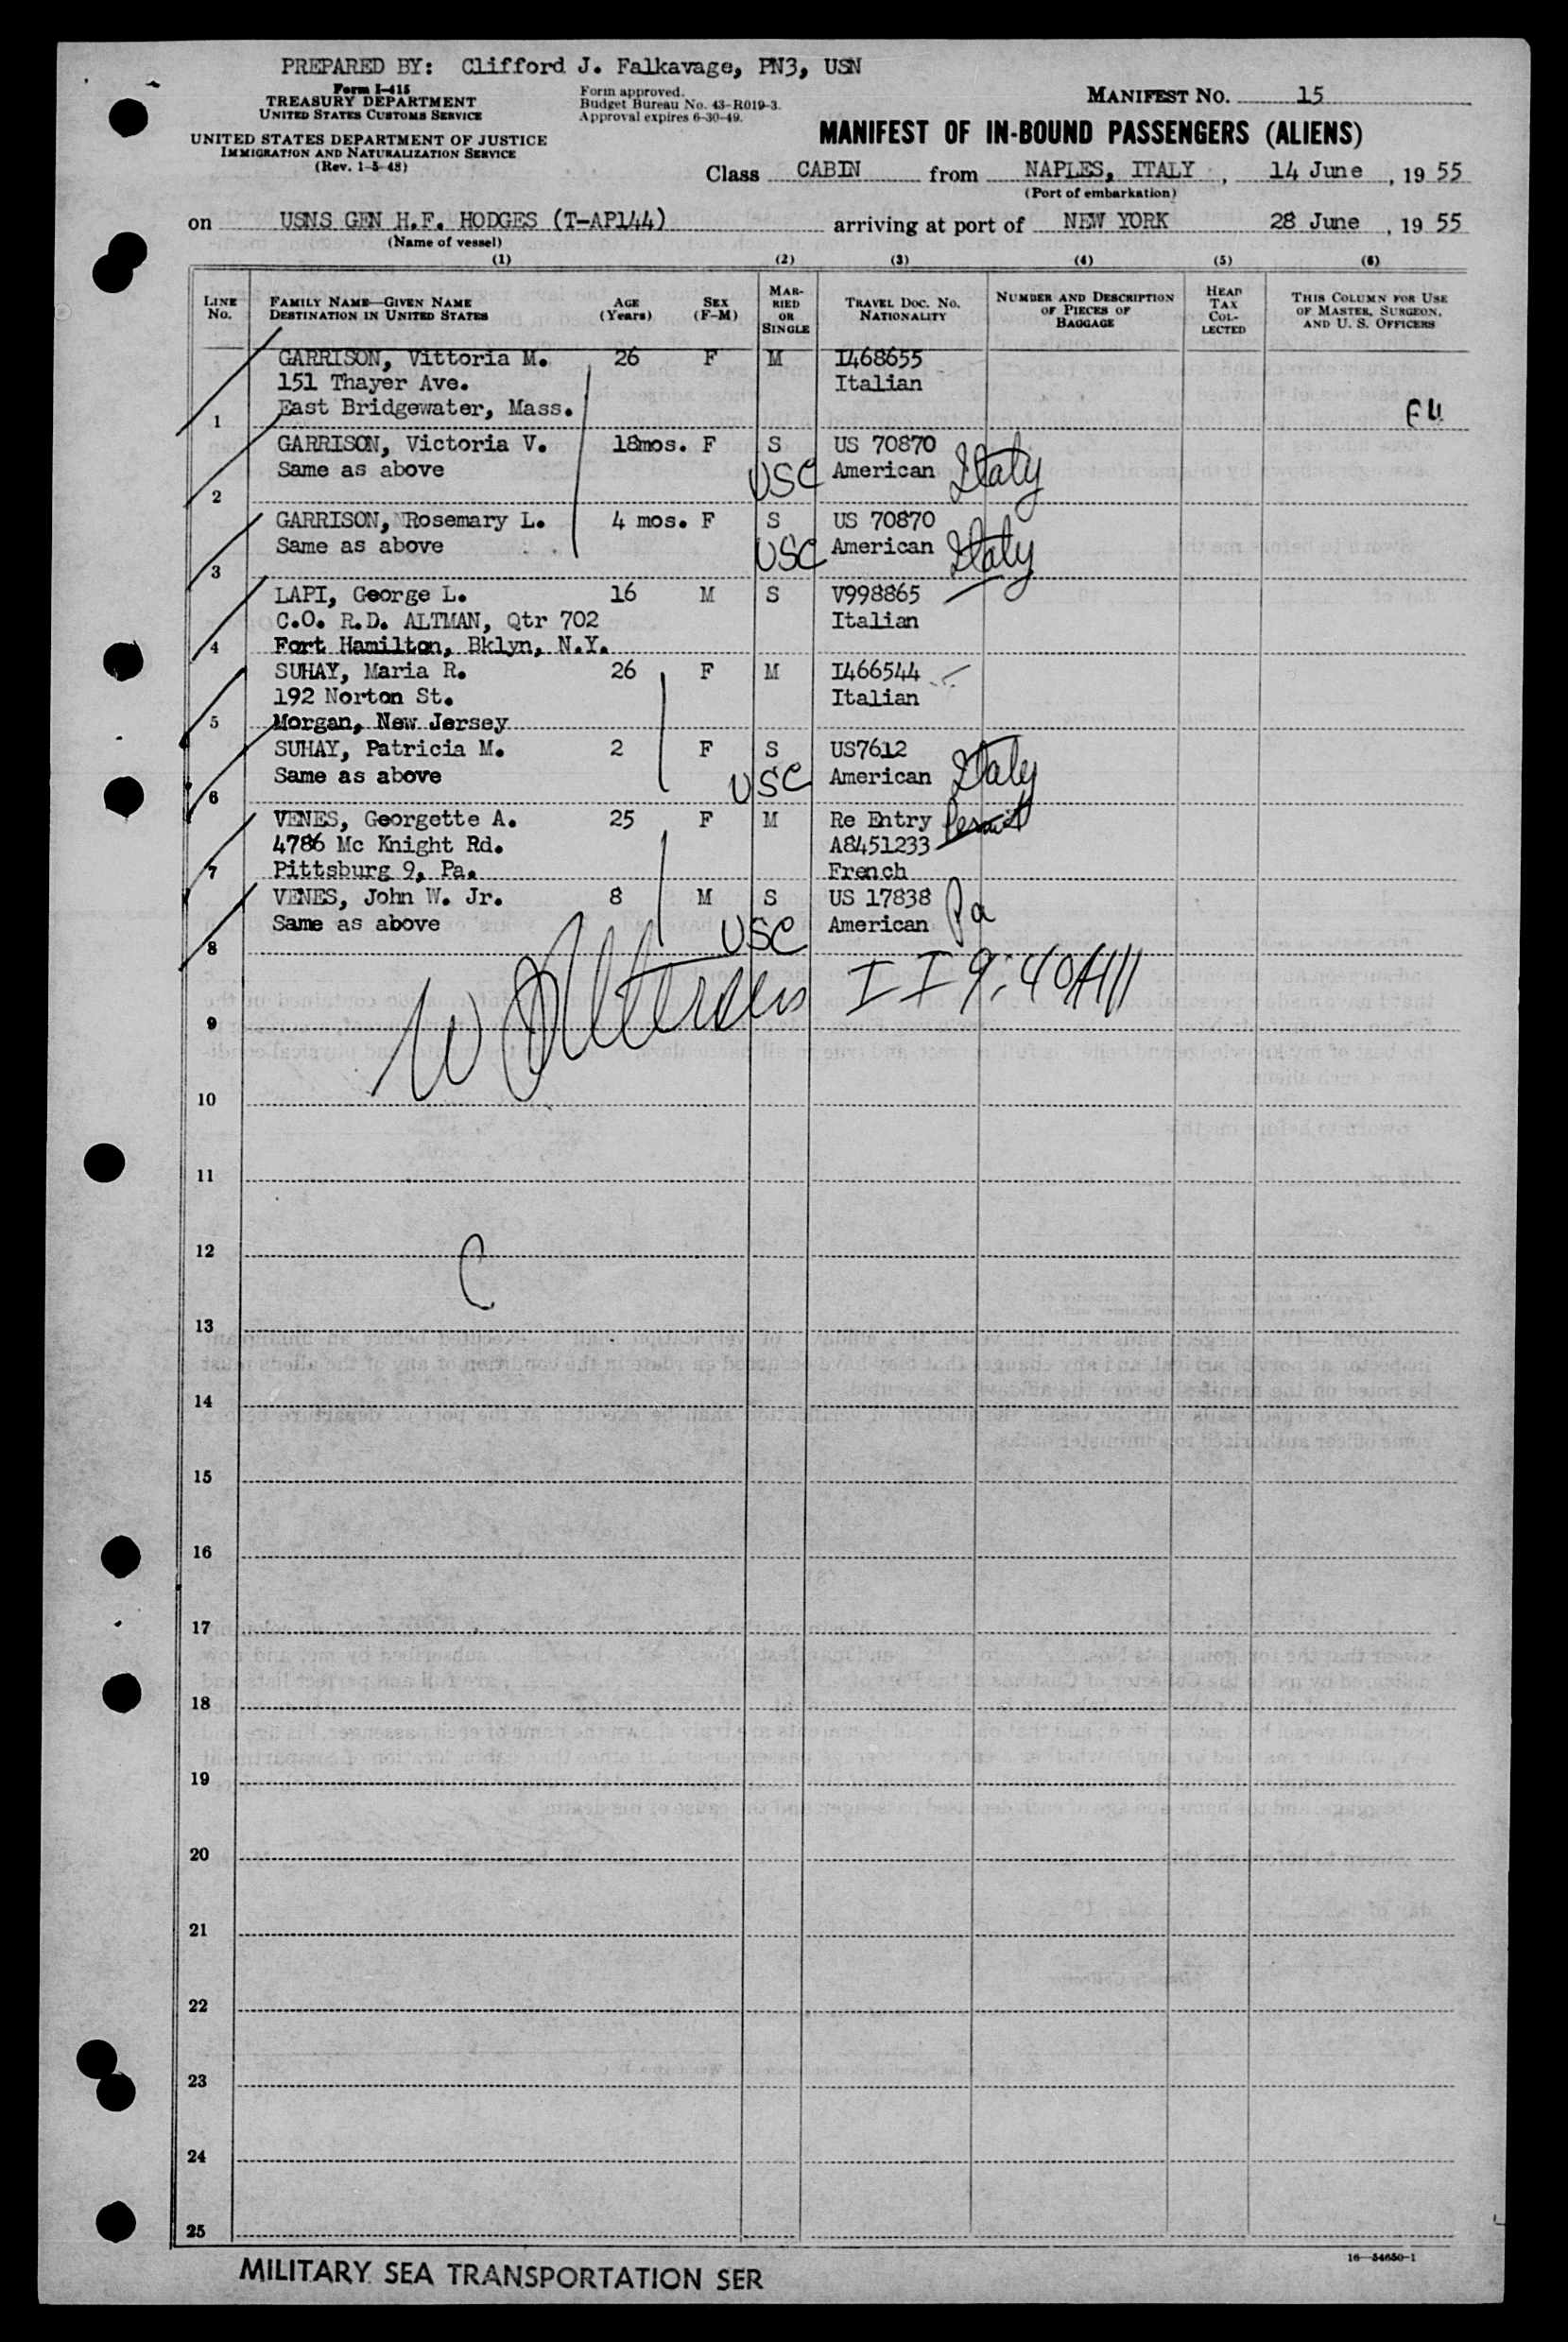 PREPARED BY: Clifford J. Falkavage, PN3, USN
Form I-415
TREASURY DEPARTMENT
UNITED STATES CUSTOMS SERVICE
UNITED STATES DEPARTMENT OF JUSTICE
IMMIGRATION AND NATURALIZATION SERVICE
(Rev. 1-5-48)
Form approved.
Budget Bureau No. 43-R019-3.
Approval expires 6-30-49.
MANIFEST NO. 15
MANIFEST OF IN-BOUND PASSENGERS (ALIENS)
Class CABIN from NAPLES, ITALY, 14 June, 19 55
(Port of embarkation)
on USNS GEN H.F. HODGES (T-AP144) arriving at port of NEW YORK 28 June, 19 55
(Name of vessel)
(1) (2) (3) (4) (5) (6)
LINE No. FAMILY NAME—GIVEN NAME DESTINATION IN UNITED STATES AGE (Years) SEX (F-M) MARRIED OR SINGLE TRAVEL DOC. NO. NATIONALITY NUMBER AND DESCRIPTION OF PIECES OF BAGGAGE HEAD TAX COLLECTED THIS COLUMN FOR USE OF MASTER, SURGEON, AND U. S. OFFICERS
GARRISON, Vittoria M. 26 F M I468655
151 Thayer Ave. Italian
1 East Bridgewater, Mass.
GARRISON, Victoria V. 18mos. F S US 70870
Same as above USC American Italy
2
GARRISON, Rosemary L. 4 mos. F S US 70870
Same as above USC American Italy
3
LAPI, George L. 16 M S V998865
C.O. R.D. ALTMAN, Qtr 702 Italian
4 Fort Hamilton, Bklyn, N.Y.
SUHAY, Maria R. 26 F M I466544
192 Norton St. Italian
5 Morgan, New Jersey
SUHAY, Patricia M. 2 F S US7612
Same as above USC American Italy
6
VENES, Georgette A. 25 F M Re Entry Permit
4786 Mc Knight Rd. A8451233
7 Pittsburg 9, Pa. French
VENES, John W. Jr. 8 M S US 17838
Same as above USC American Pa
8
I I 9:40AM
9
10
11
12
13
14
15
16
17
18
19
20
21
22
23
24
25
16—54650-1
MILITARY SEA TRANSPORTATION SER